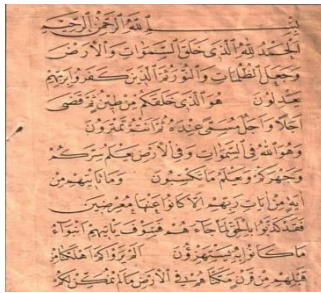 بسم الله الرحمن الرحيم
الحمد لله الذي خلق السموات والارض
وجعل الظلمات والنور ثم الذين كفروا بربهم
يعدلون هو الذي خلقكم من طين ثم قضى
اجلا واجل مسمى عنده ثم انتم تمترون
وهو الله في السموات وفي الارض يعلم سركم
وجهركم ويعلم ما تكسبون وما تاتيهم من
اية من ايات ربهم الا كانوا عنها معرضين
فقد كذبوا بالحق لما جاءهم فسوف ياتيهم انبؤا
ما كانوا به يستهزؤن الم يروا كم اهلكنا من
قبلهم من قرن مكناهم في الارض ما لم نمكن لكم